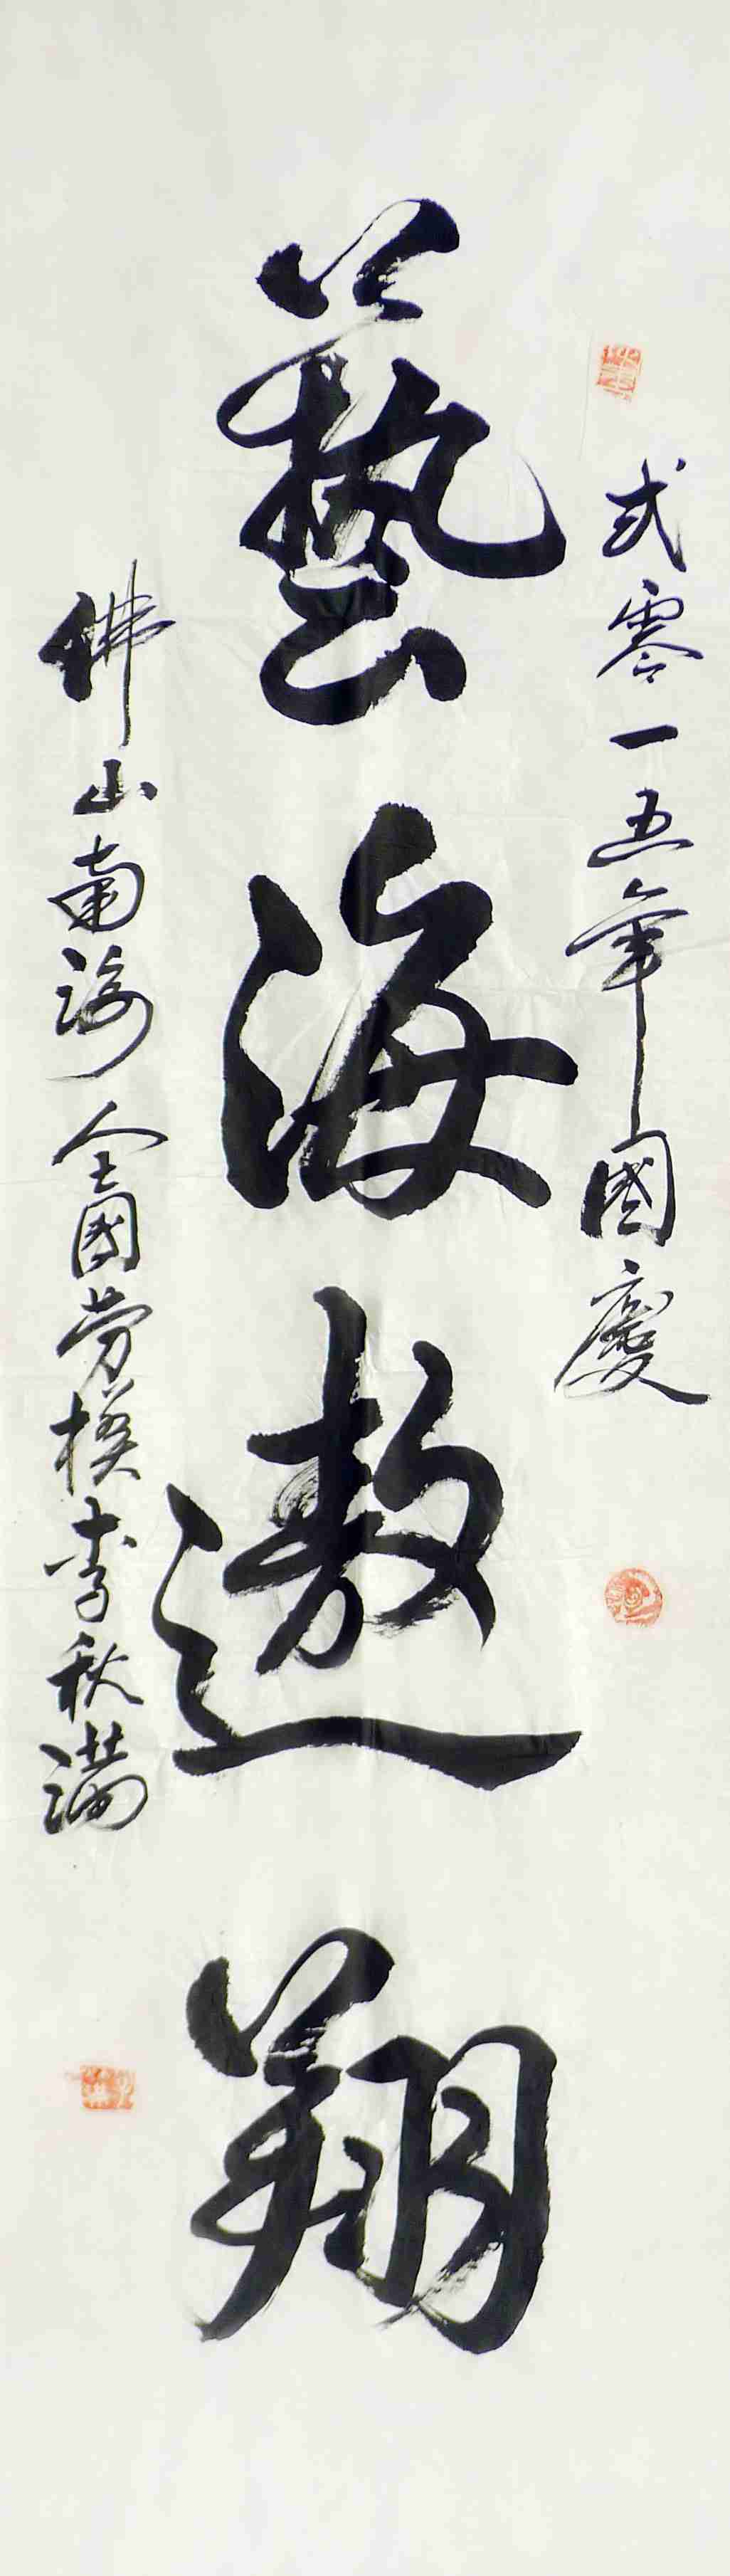 弍零一五年國慶
藝海遨翔
佛山南海全國劳模李秋满